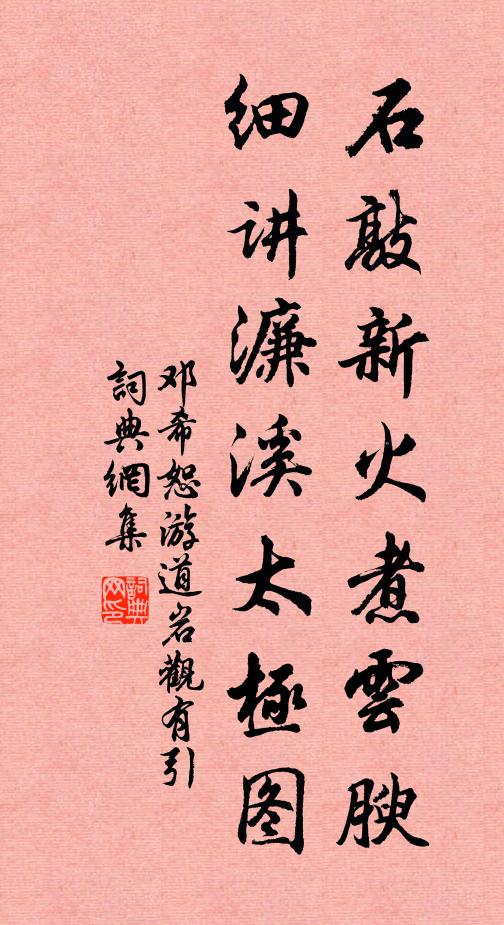 石敲新火煮雲腴
细讲濂溪太極图
邓希恕游道岩觀有引
詞典網集
詞典网印